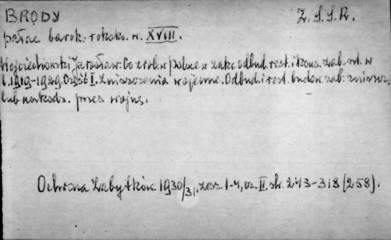 BRODY Z.S.S.R.
pałac barok. rokoko. w. XVIII.
Wojciechowski Jarosław. Co zrob. w Polsce w zakr. odbud. rest. i kons. zab. szt. w
l. 1919-1929. Część I. Zniszczenia wojenne. Odbud. i rest. budow. zab. zniszcz.
lub uszkodz. przez wojnę.
Ochrona Zabytków. 1930/31, zesz. 1-4, cz. II. str. 273-318 (258).